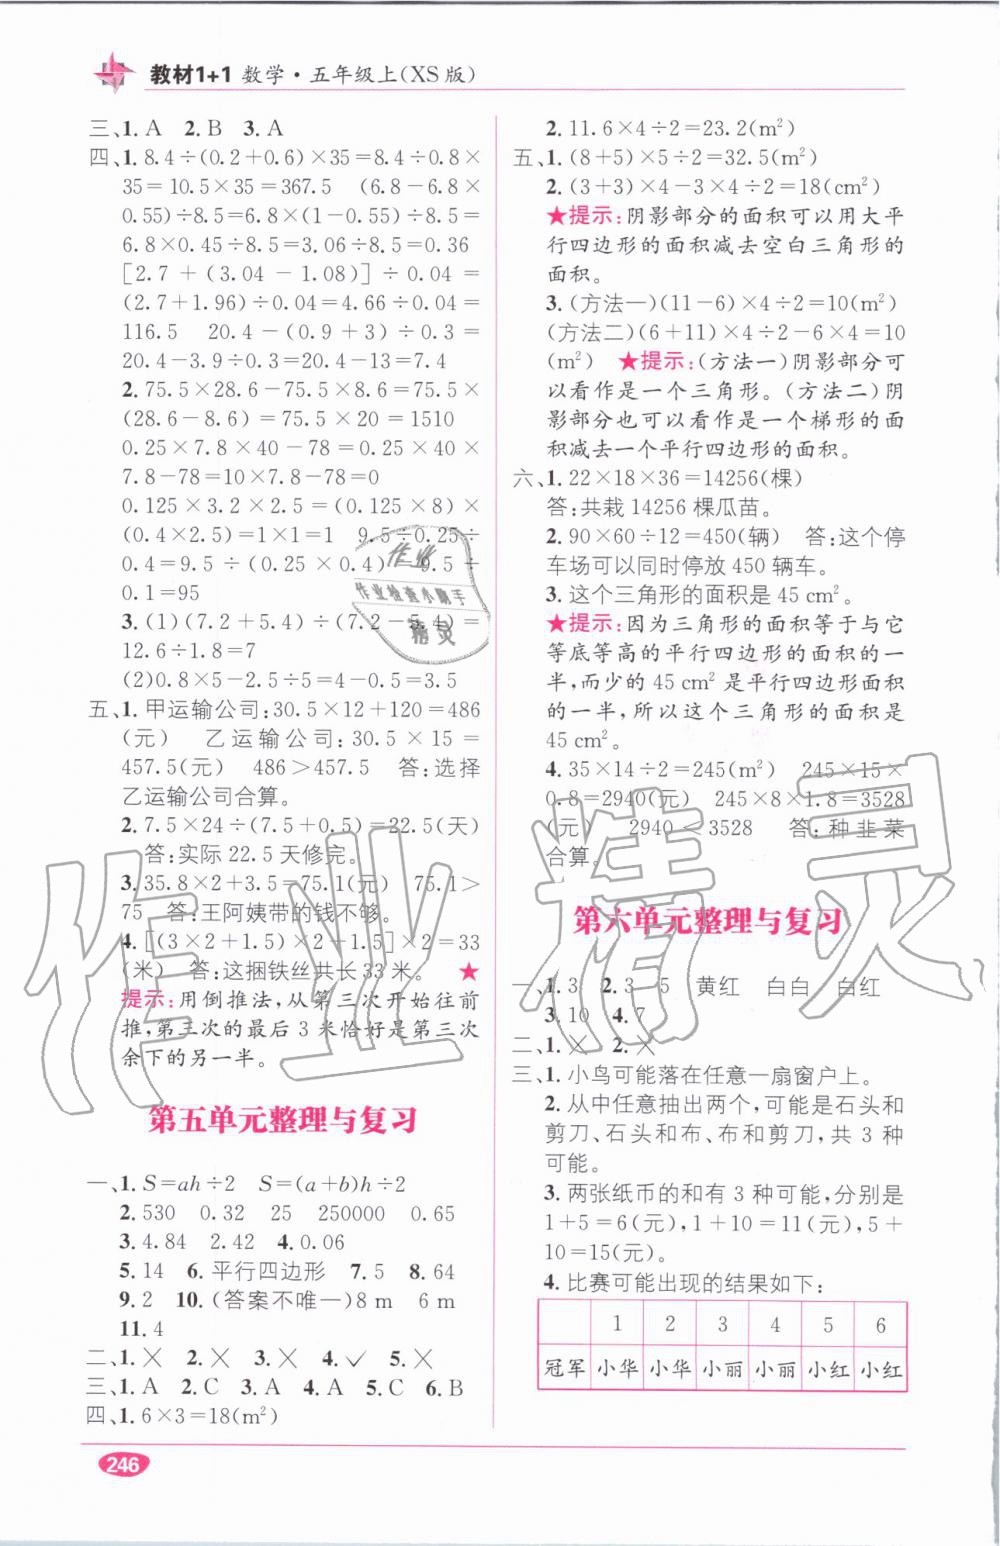 教材1+1 数学·五年级上(XS版)
三、1. A 2. B 3. A
四、1. 8.4÷(0.2+0.6)×35=8.4÷0.8×
35=10.5×35=367.5 (6.8-6.8×
0.55)÷8.5=6.8×(1-0.55)÷8.5=
6.8×0.45÷8.5=3.06÷8.5=0.36
[2.7+(3.04-1.08)]÷0.04=
(2.7+1.96)÷0.04=4.66÷0.04=
116.5 20.4-(0.9+3)÷0.3=
20.4-3.9÷0.3=20.4-13=7.4
2. 75.5×28.6-75.5×8.6=75.5×
(28.6-8.6)=75.5×20=1510
0.25×7.8×40-78=0.25×40×
7.8-78=10×7.8-78=0
0.125×3.2×2.5=(0.125×8)×
(0.4×2.5)=1×1=1 9.5÷0.25÷
0.4=9.5÷(0.25×0.4)=9.5÷
0.1=95
3. (1)(7.2+5.4)÷(7.2-5.4)=
12.6÷1.8=7
(2)0.8×5-2.5÷5=4-0.5=3.5
五、1. 甲运输公司:30.5×12+120=486
(元) 乙运输公司:30.5×15=
457.5(元) 486>457.5 答:选择
乙运输公司合算。
2. 7.5×24÷(7.5+0.5)=22.5(天)
答:实际22.5天修完。
3. 35.8×2+3.5=75.1(元) 75.1>
75 答:王阿姨带的钱不够。
4. [(3×2+1.5)×2+1.5]×2=33
(米) 答:这捆铁丝共长33米。 ★
提示:用倒推法,从第三次开始往前
推,第三次的最后3米恰好是第三次
余下的另一半。
第五单元整理与复习
一、1. S=ah÷2 S=(a+b)h÷2
2. 530 0.32 25 250000 0.65
3. 4.84 2.42 4. 0.06
5. 14 6. 平行四边形 7. 5 8. 64
9. 2 10. (答案不唯一)8 m 6 m
11. 4
二、1. × 2. × 3. × 4. ✓ 5. ×
三、1. A 2. C 3. A 4. A 5. C 6. B
四、1. 6×3=18(m²)
2. 11.6×4÷2=23.2(m²)
五、1. (8+5)×5÷2=32.5(m²)
2. (3+3)×4-3×4÷2=18(cm²)
★提示:阴影部分的面积可以用大平
行四边形的面积减去空白三角形的
面积。
3. (方法一)(11-6)×4÷2=10(m²)
(方法二)(6+11)×4÷2-6×4=10
(m²) ★提示:(方法一)阴影部分可
以看作是一个三角形。(方法二)阴
影部分也可以看作是一个梯形的面
积减去一个平行四边形的面积。
六、1. 22×18×36=14256(棵)
答:共栽14256棵瓜苗。
2. 90×60÷12=450(辆) 答:这个停
车场可以同时停放450辆车。
3. 这个三角形的面积是45 cm²。
★提示:因为三角形的面积等于与它
等底等高的平行四边形的面积的一
半,而少的45 cm²是平行四边形面积
的一半,所以这个三角形的面积是
45 cm²。
4. 35×14÷2=245(m²) 245×15×
0.8=2940(元) 245×8×1.8=3528
(元) 2940<3528 答:种韭菜
合算。
第六单元整理与复习
一、1. 3 2. 3 5 黄红 白白 白红
3. 10 4. 7
二、1. × 2. ×
三、1. 小鸟可能落在任意一扇窗户上。
2. 从中任意抽出两个,可能是石头和
剪刀、石头和布、布和剪刀,共3种
可能。
3. 两张纸币的和有3种可能,分别是
1+5=6(元),1+10=11(元),5+
10=15(元)。
4. 比赛可能出现的结果如下:
1 2 3 4 5 6
冠军 小华 小华 小丽 小丽 小红 小红
246
作业
作业检查小助手
精灵
作业精灵